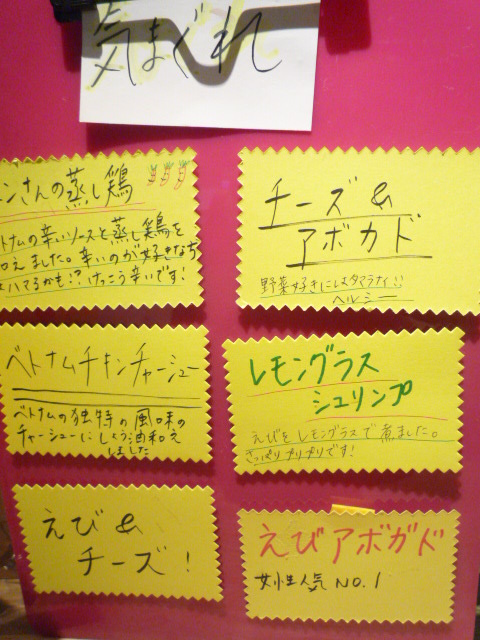 気まぐれ
ンさんの蒸し鶏
トナムの辛いソースと蒸し鶏を
和えました。辛いのが好きなら
ハマるかも!?けっこう辛いです!
チーズ&
アボカド
野菜好きにはタマラナイ!!
ヘルシー
ベトナムチキンチャーシュー
ベトナムの独特の風味の
チャーシューにしょう油和え
しました
レモングラス
シュリンプ
えびをレモングラスで煮ました。
さっぱりプリプリです!
えび&
チーズ!
えびアボガド
女性人気 NO.1